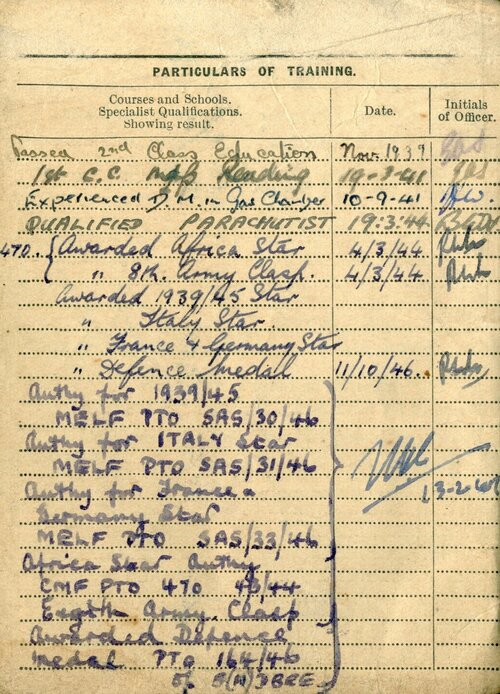 PARTICULARS OF TRAINING.
Courses and Schools. Specialist Qualifications. Showing result. Date. Initials of Officer.
Passed 2nd Class Education Nov. 1937
1st C.C. Map Reading 19-3-41
Experienced D.M. in Gas Chamber 10-9-41
QUALIFIED PARACHUTIST 19.3.44
470. { Awarded Africa Star 4/3/44
" 8th. Army Clasp. 4/3/44
Awarded 1939/45 Star
" Italy Star.
" France & Germany Star
" Defence Medal 11/10/46.
Authy for 1939/45
MELF PTO SAS/30/46
Authy for ITALY Star
MELF PTO SAS/31/46
Authy for France &
Germany Star
MELF PTO SAS/33/46
13-2-47
Africa Star Authy
CMF PTO 470 43/44
Eighth Army Clasp
Awarded Defence
Medal PTO 164/46
of 5(N)BRE